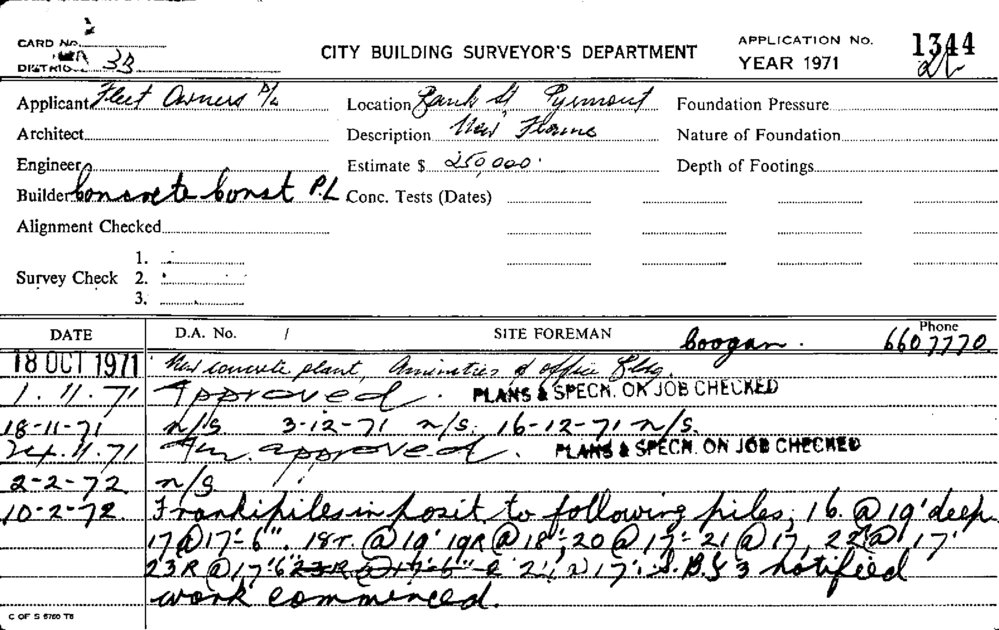 CARD No.
CITY BUILDING SURVEYOR'S DEPARTMENT
APPLICATION No. 1344
DISTRICT 3B
YEAR 1971
Applicant Fleet Owners P/L
Location Bank St Pyrmont
Foundation Pressure
Architect
Description New
Nature of Foundation
Engineer
Estimate $ 250,000
Depth of Footings
Builder Concrete Const P.L
Conc. Tests (Dates)
Alignment Checked
1.
Survey Check 2.
3.
DATE D.A. No. / SITE FOREMAN Coogan. Phone 6607770
18 OCT 1971 New concrete plant, Amenities & office Bldg.
1.11.71 Approved. PLANS & SPECN. ON JOB CHECKED
18-11-71 n/s 3-12-71 n/s. 16-12-71 n/s.
24.11.71 approved. PLANS & SPECN. ON JOB CHECKED
2-2-72 n/s
10-2-72. Frankipiles in posit to following piles, 16 @ 19' deep
17 @ 17'-6". 18r. @ 19' 19R @ 18'; 20 @ 17'- 21 @ 17, 22 @ 17'
23R @ 17'6" 23R @ 17'-6" & 24 @ 17'. D.B.S 3 notified
work commenced.
C OF S 5760 T8